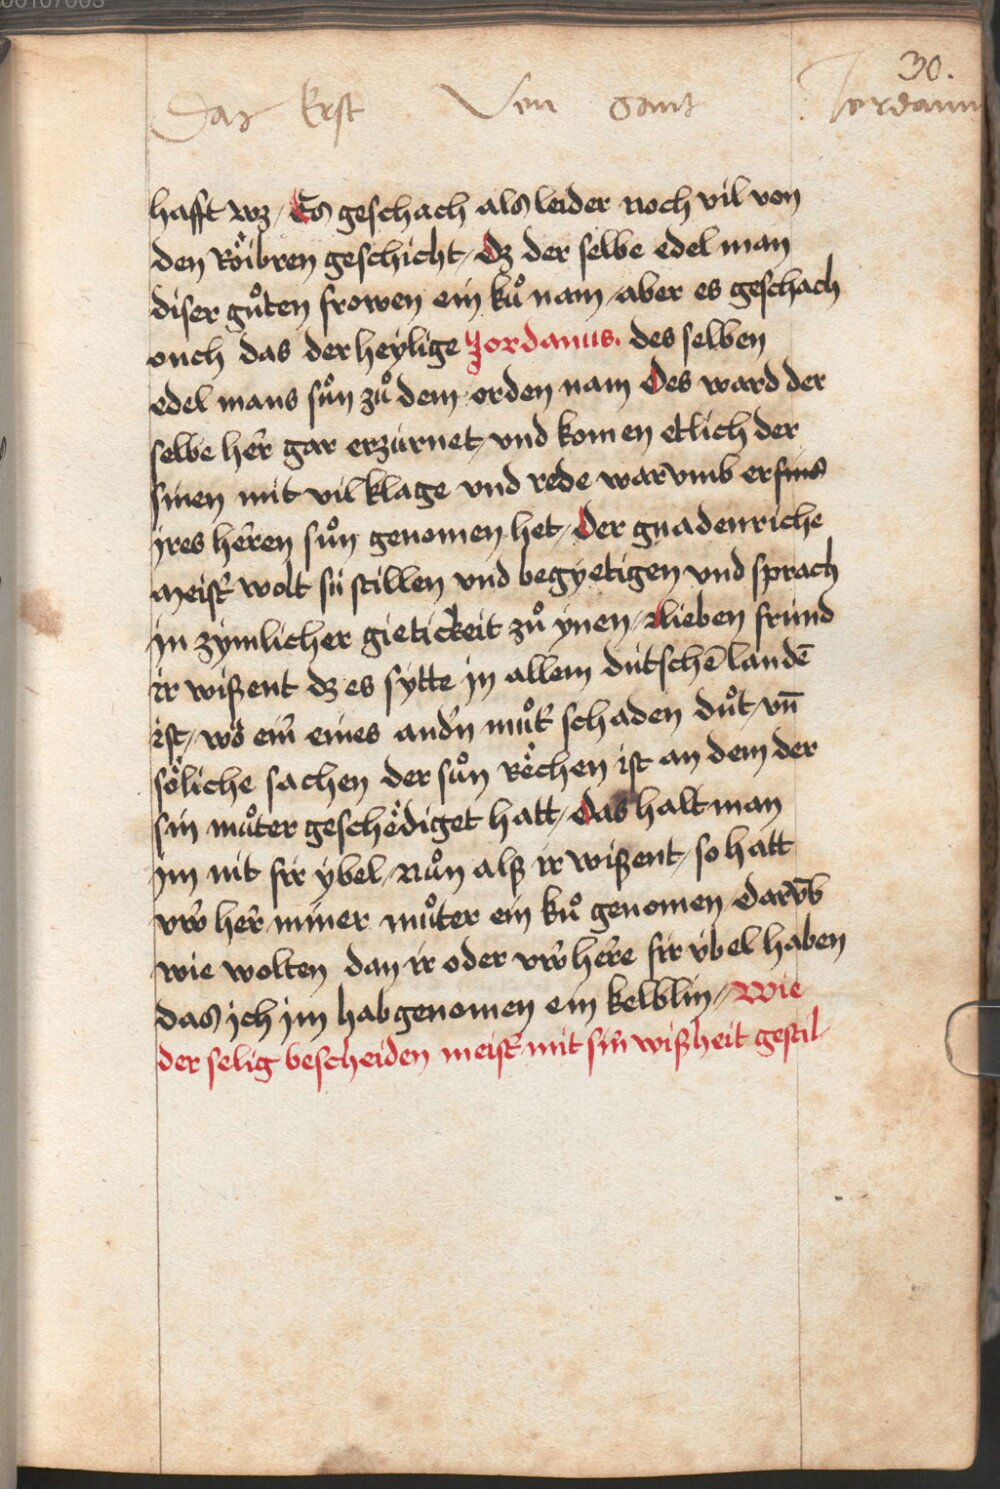 30.
Das Erst Von Sant Jordanu
hafft wz / Es geschach als leider noch vil von
den Röibren geschicht / Dz der selbe edel man
diser gůten frowen ein ků nam / aber es geschach
ouch das der heylige Jordanus. des selben
edel mans sůn zů dem orden nam Des ward der
selbe her̄ gar erzürnet / vnd komen etlich der
sinen mit vil klage vnd rede warvmb er sins
jres heren sůn genomen het / Der gnadenriche
meist̄ wolt sü stillen vnd begyetigen vnd sprach
jn zymlicher gietickeit zů ynen / Lieben fründ
ir wißent dz es sytte jn allem dütschē landē
ist / wö ein̄ eines andn̄ můt̄ schaden důt / vn̄
söliche sachen der sůn Rëchen ist an dem der
sin můter geschëdiget hatt / Das halt man
jm nit für ybel / Nůn alß ir wißent / so hatt
vw̄ her̄ miner můter ein ků genomen Darv̄b
wie wolten dan ir oder vw̄ here für übel haben
das jch jm hab genomen ein kelblin / Wie
der selig bescheiden meist̄ mit sin̄ wißheit gestil